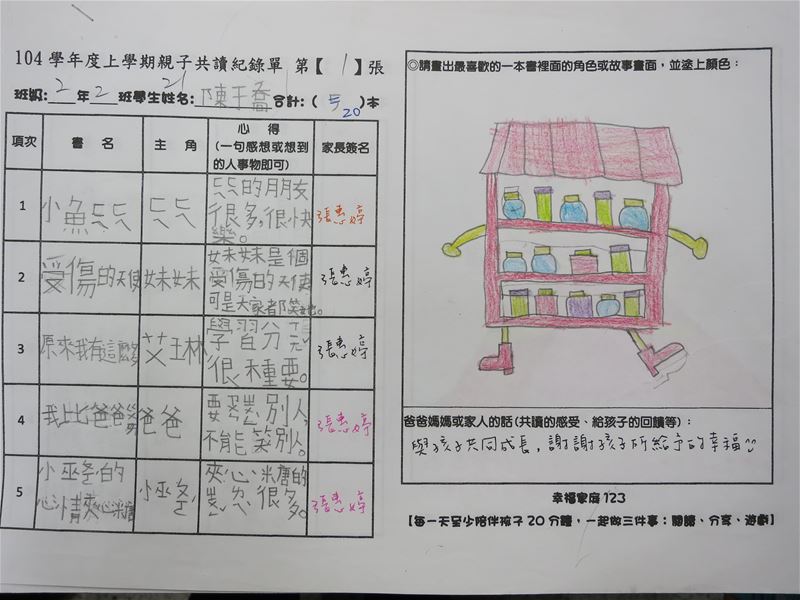 104學年度上學期親子共讀紀錄單 第【 1 】張
班級: 2 年 2 班學生姓名: 21 陳玉喬 合計:( 5 )本
20
項次
書 名
主 角
心 得
(一句感想或想到
的人事物即可)
家長簽名
1
小魚ㄎㄎ
ㄎㄎ
ㄎㄎ的朋友
很多,很快
樂。
張惠婷
2
受傷的天使
妹妹
妹妹是個
受傷的天使
可是大家都笑她。
張惠婷
3
原來我有這麼多
艾琳
學習分ㄒㄧㄤˇ
很種要。
張惠婷
4
我比爸爸
爸爸
要 別人,
不能笑別人。
張惠婷
5
小巫 的
心情夾心米糖
小巫
夾心米糖的
很多。
張惠婷
◎請畫出最喜歡的一本書裡面的角色或故事畫面,並塗上顏色:
爸爸媽媽或家人的話(共讀的感受、給孩子的回饋等):
與孩子共同成長,謝謝孩子所給予的幸福
幸福家庭 123
【每一天至少陪伴孩子 20 分鐘,一起做三件事:閱讀、分享、遊戲】